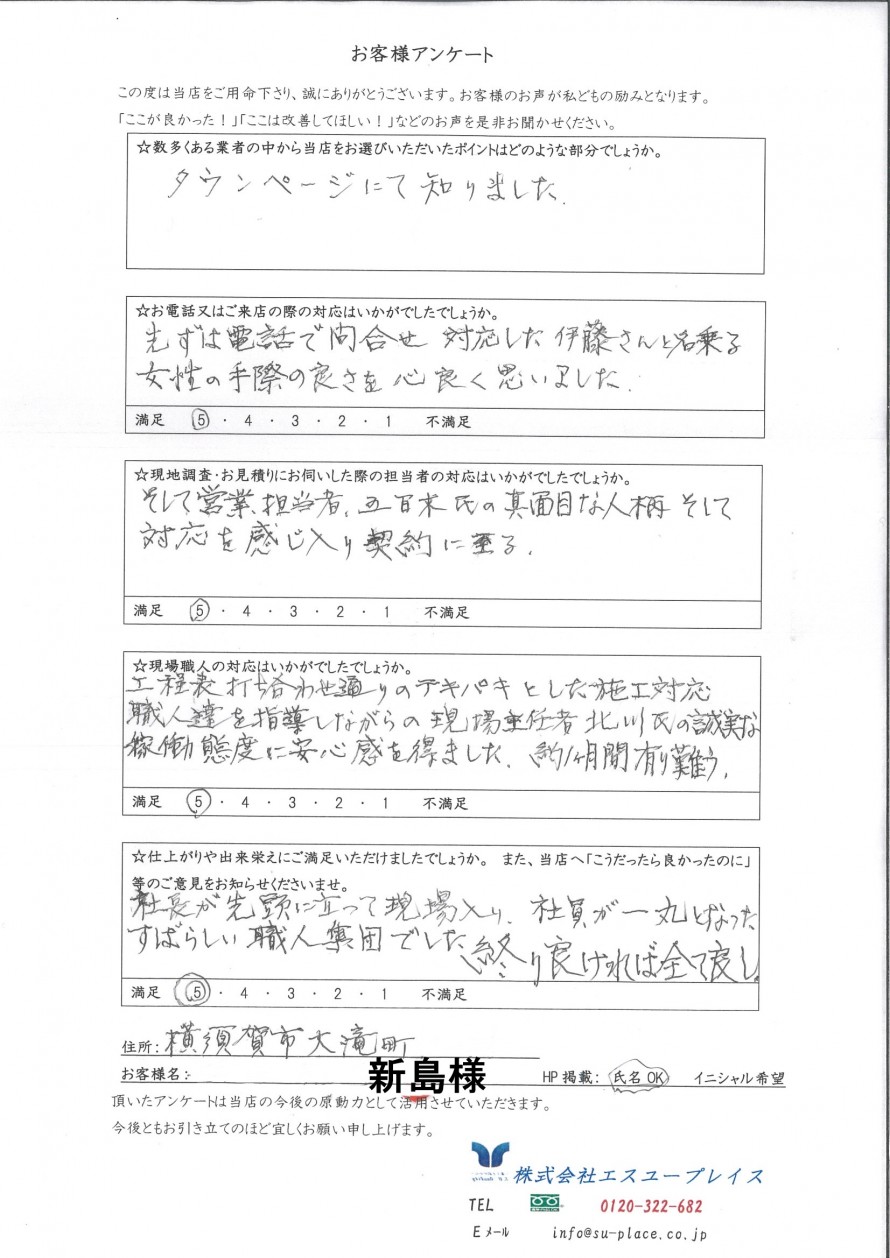 お客様アンケート
この度は当店をご用命下さり、誠にありがとうございます。お客様のお声が私どもの励みとなります。
「ここが良かった！」「ここは改善してほしい！」などのお声を是非お聞かせください。
☆数多くある業者の中から当店をお選びいただいたポイントはどのような部分でしょうか。
タウンページにて知りました.
☆お電話又はご来店の際の対応はいかがでしたでしょうか。
先ずは電話で問合せ 対応した伊藤さんと名乗る
女性の手際の良さを心良く思いました.
満足 5・4・3・2・1 不満足
☆現地調査・お見積りにお伺いした際の担当者の対応はいかがでしたでしょうか。
そして営業担当者、五百木氏の真面目な人柄そして
対応を感じ入り契約に至る.
満足 5・4・3・2・1 不満足
☆現場職人の対応はいかがでしたでしょうか。
工程表打ち合わせ通りのテキパキとした施工対応
職人達を指導しながらの現場主任者北川氏の誠実な
稼働態度に安心感を得ました、約1ヶ月間有り難う.
満足 5・4・3・2・1 不満足
☆仕上がりや出来栄えにご満足いただけましたでしょうか。 また、当店へ「こうだったら良かったのに」
等のご意見をお知らせくださいませ。
社長が先頭に立って現場入り、社員が一丸となった
すばらしい職人集団でした、終り良ければ全て良し。
満足 5・4・3・2・1 不満足
住所：横須賀市大滝町
お客様名： 新島様 HP掲載：氏名OK イニシャル希望
頂いたアンケートは当店の今後の原動力として活用させていただきます。
今後ともお引き立てのほど宜しくお願い申し上げます。
株式会社エスユープレイス
TEL 0120-322-682
Eメール info@su-place.co.jp